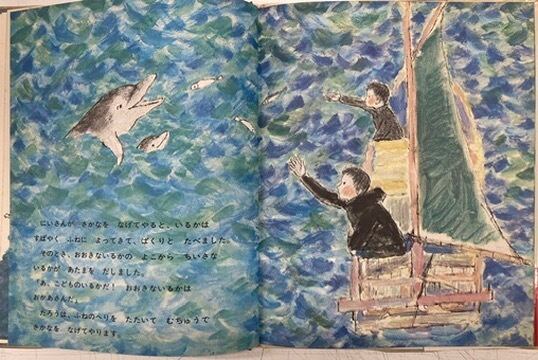 にいさんが さかなを なげてやると、いるかは
すばやく ふねに よってきて、ぱくりと たべました。
そのとき、おおきないるかの よこから ちいさな
いるかが あたまを だしました。
「あ、こどものいるかだ！ おおきないるかは
おかあさんだ」
たろうは、ふねのへりを たたいて むちゅうで
さかなを なげてやります。